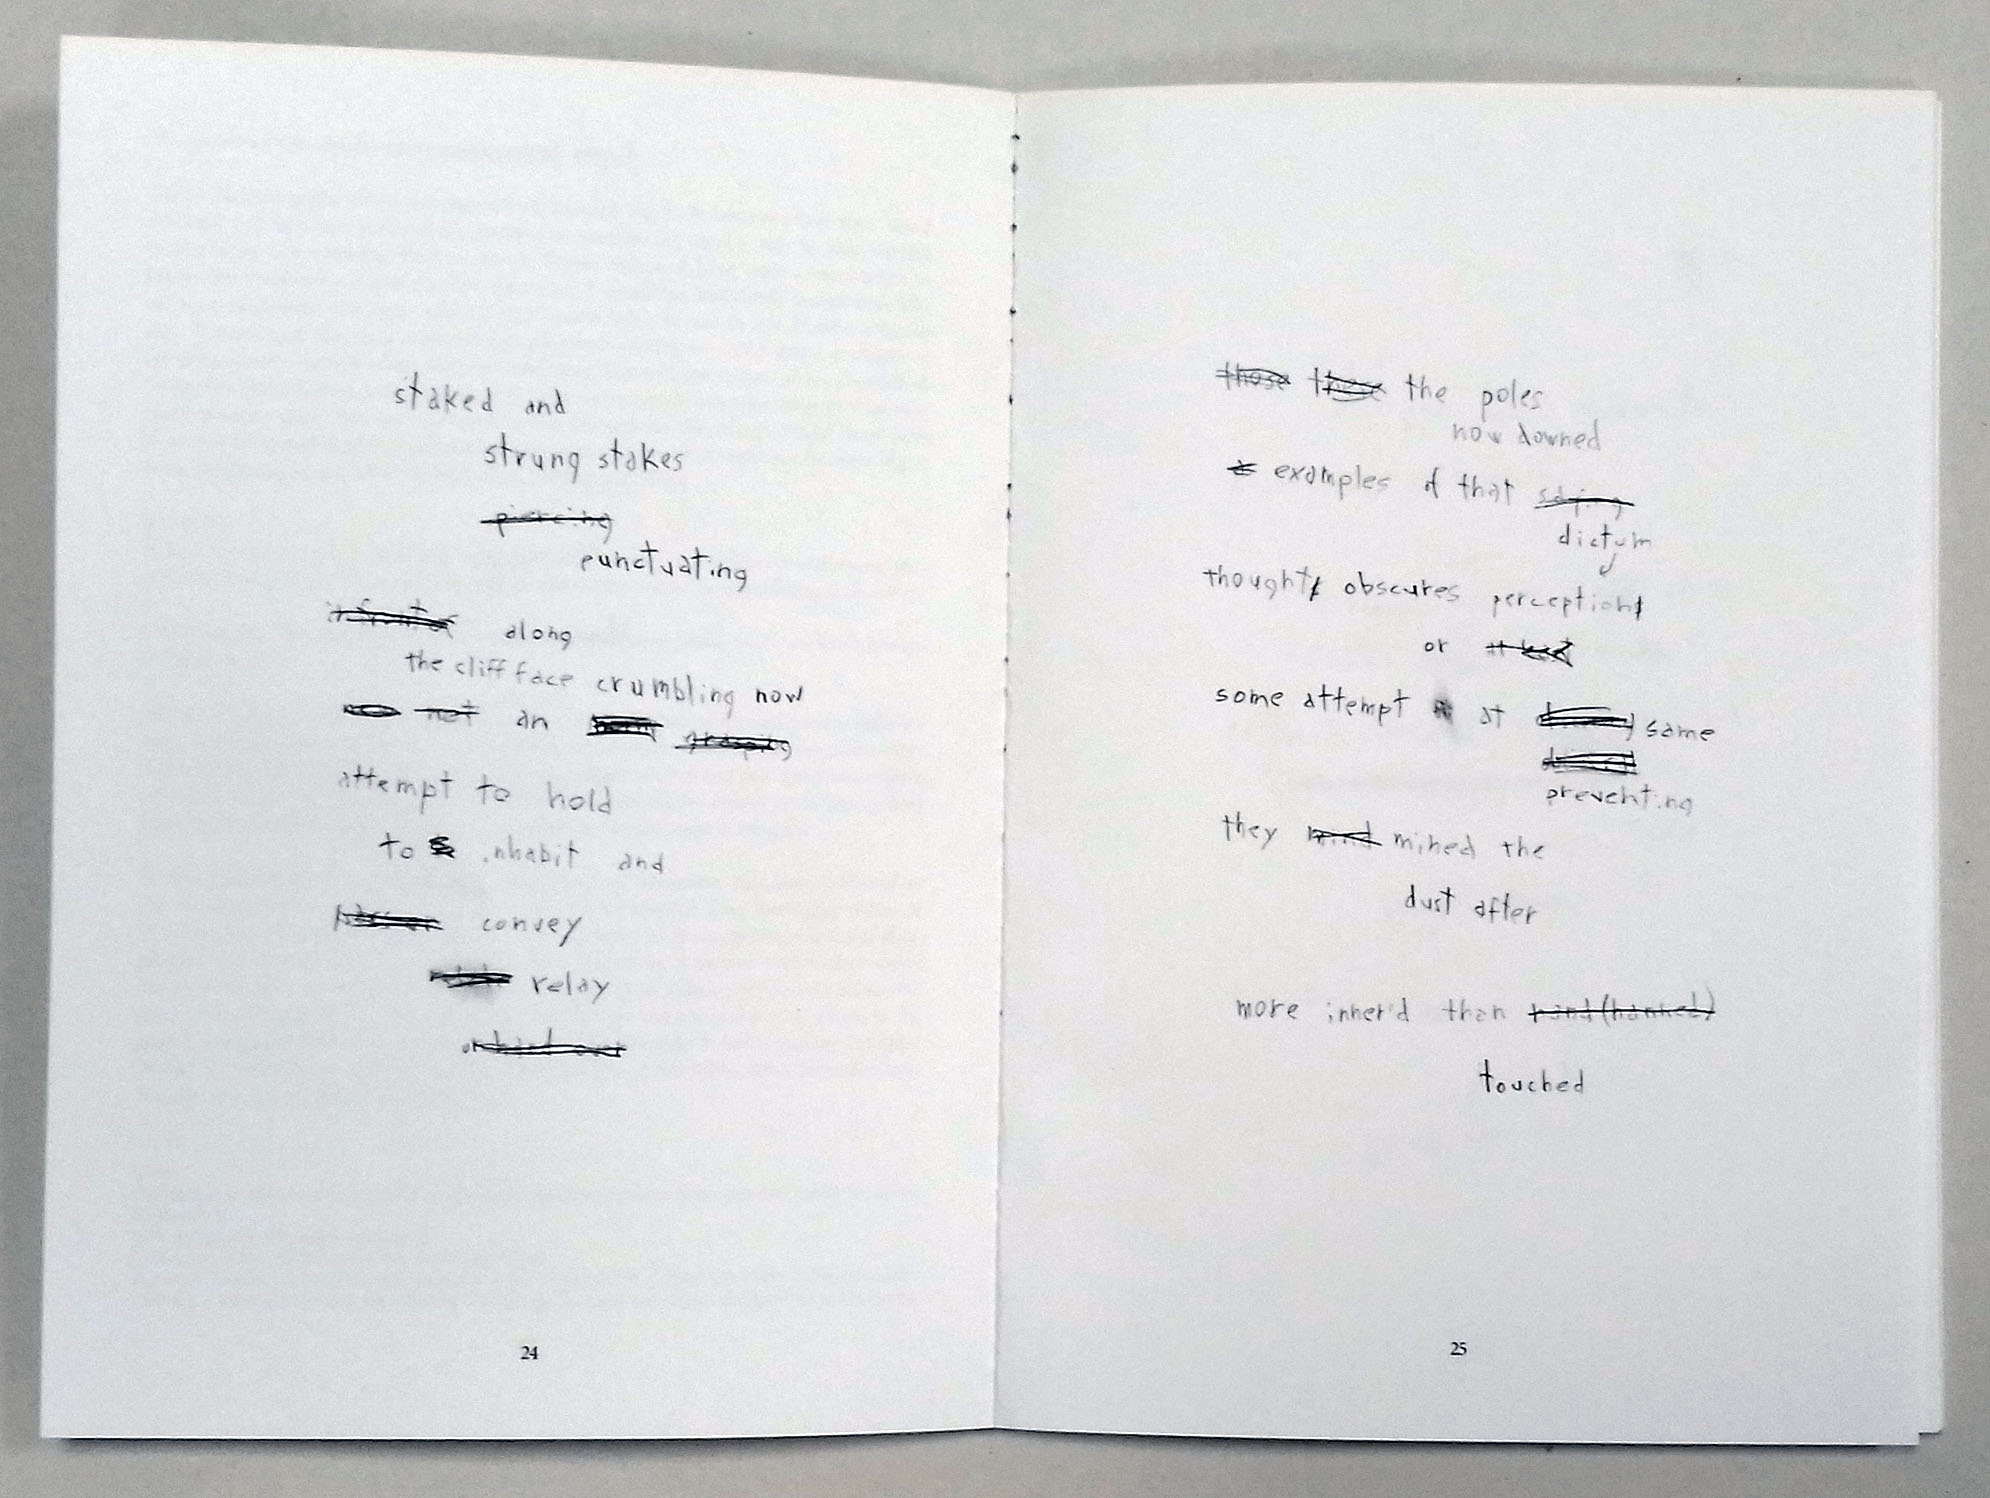 staked and
strung stakes
piercing
punctuating
along
the cliff face crumbling now
not an grasping
attempt to hold
to inhabit and
convey
relay
or hand over
24
those these the poles
now downed
examples of that saying
dictum
thought obscures perception
or
some attempt at same
preventing
they mind mined the
dust after
more inner'd than hand (hanned)
touched
25